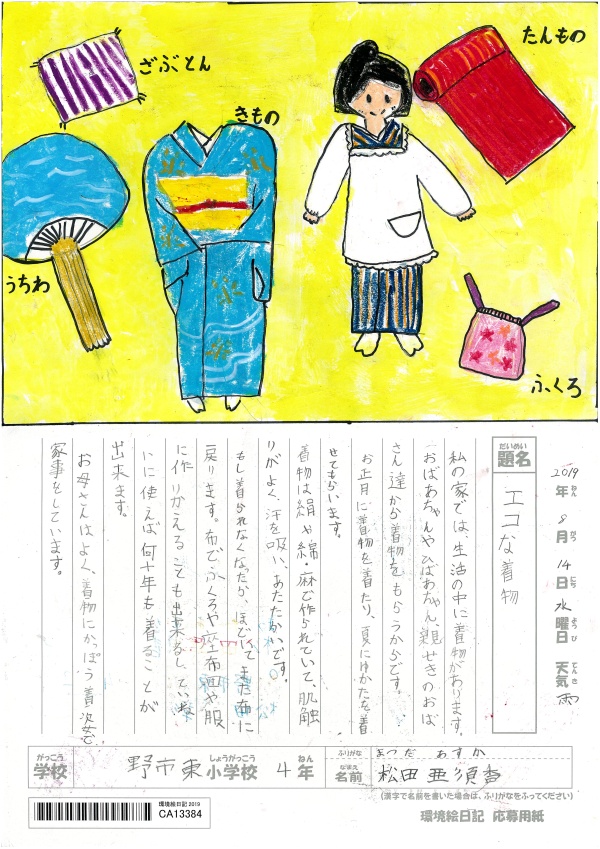 ざぶとん
きもの
たんもの
うちわ
ふくろ
2019年 8月 14日 水曜日 天気 雨
ねん がつ にち ようび てんき
だいめい
題名
エコな着物
私の家では、生活の中に着物があります。
おばあちゃんやひばあちゃん、親せきのおば
さん達から着物をもらうからです。
お正月に着物を着たり、夏にゆかたを着
せてもらいます。
着物は絹や綿・麻で作られていて、肌触
りがよく、汗を吸い、あたたかいです。
もし着られなくなったら、ほどいてまた布に
戻ります。布でふくろや座布団や服
に作りかえることも出来るし、ていね
いに使えば何十年も着ることが
出来ます。
お母さんはよく、着物にかっぽう着姿で
家事をしています。
がっこう
学校
野市東
しょうがっこう
小学校
4
ねん
年
ふりがな
まつだ あすか
なまえ
名前
松田 亜須香
(漢字で名前を書いた場合は、ふりがなをふってください)
環境絵日記 2019
CA13384
環境絵日記 応募用紙